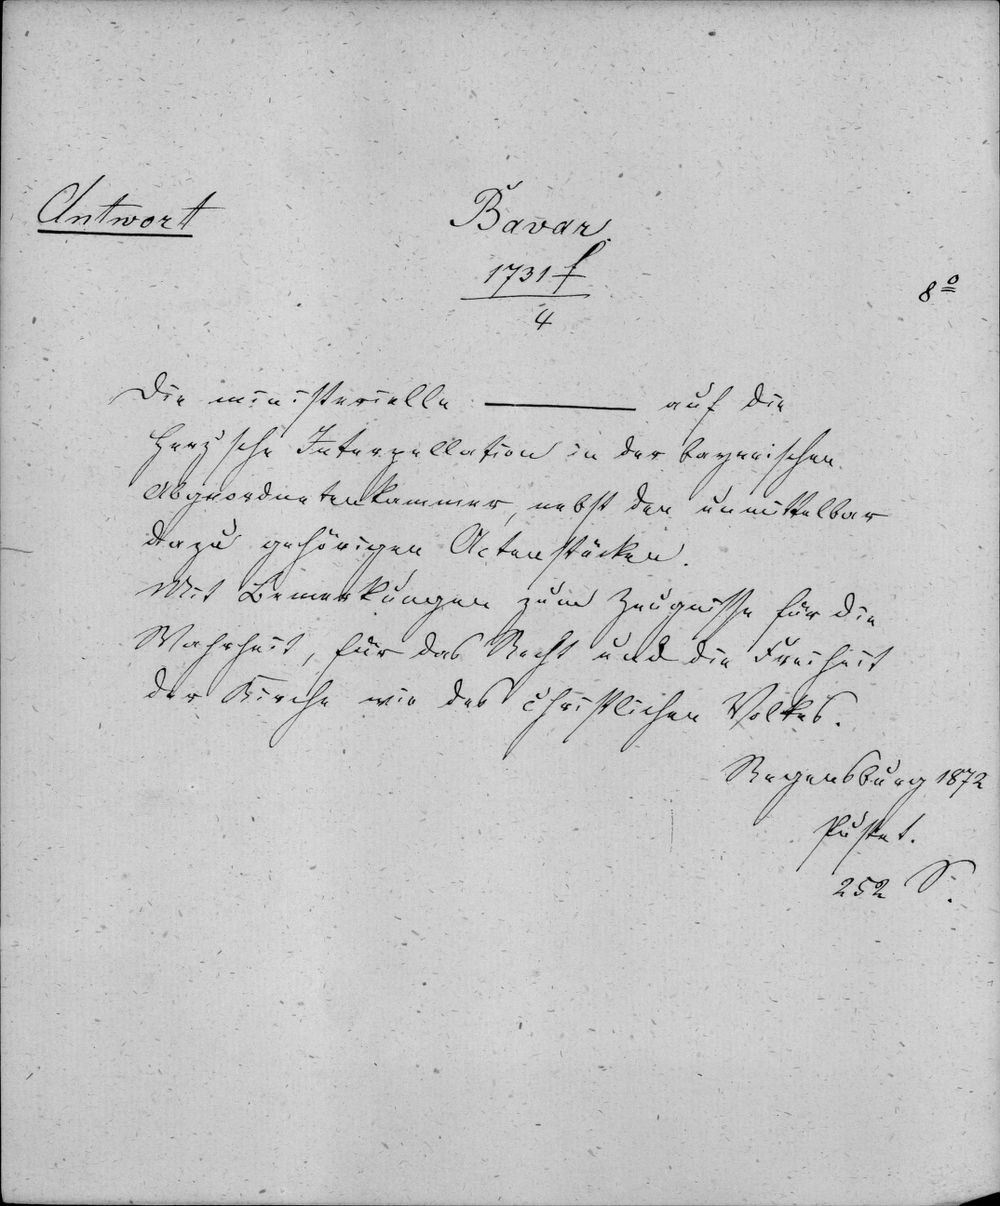 Antwort
Bavar.
1731 f
4
8º
Die ministerielle ——— auf die
Herz'sche Interpellation in der bayerischen
Abgeordnetenkammer, nebst den unmittelbar
dazu gehörigen Actenstücken.
Mit Bemerkungen zum Zeugnisse für die
Wahrheit, für das Recht und die Freiheit
der Kirche wie des christlichen Volkes.
Regensburg 1872
Pustet.
252 S.